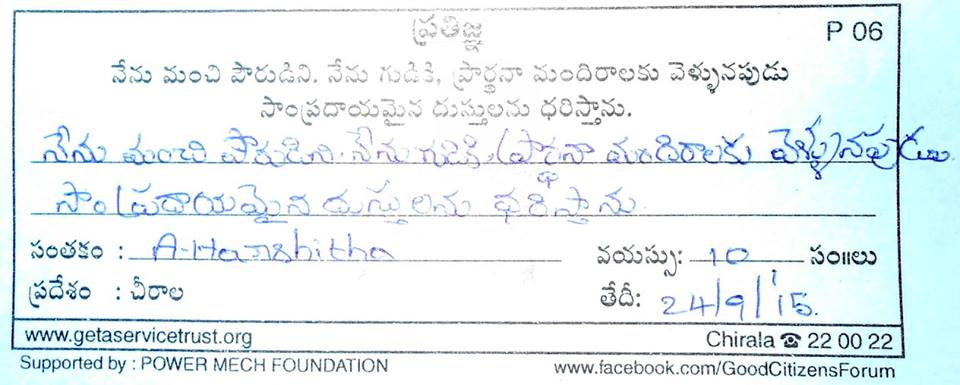 ప్రతిజ్ఞ
P 06
నేను మంచి పౌరుడిని. నేను గుడికి, ప్రార్థనా మందిరాలకు వెళ్ళునపుడు
సాంప్రదాయమైన దుస్తులను ధరిస్తాను.
నేను మంచి పౌరుడిని. నేను గుడికి ప్రార్థనా మందిరాలకు వెళ్ళునపుడు
సాంప్రదాయమైన దుస్తులను ధరిస్తాను.
సంతకం : A-Harshitha వయస్సు: 10 సం॥లు
ప్రదేశం : చీరాల తేదీ: 24/9/15.
www.getaservicetrust.org Chirala ☎ 22 00 22
Supported by : POWER MECH FOUNDATION www.facebook.com/GoodCitizensForum